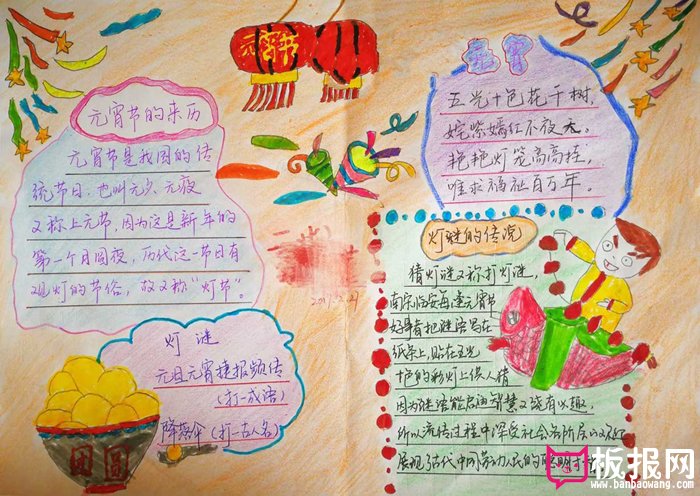 元宵节的来历
元宵节是我国的传
统节日，也叫元夕、元夜
又称上元节，因为这是新年的
第一个月圆夜，历代这一节日有
观灯的节俗，故又称“灯节”。
元宵节
元宵
五光十色花千树，
姹紫嫣红不夜天。
艳艳灯笼高高挂，
唯求福祉百万年。
灯谜的传说
猜灯谜又称打灯谜，
南宋临安每逢元宵节
好事者把谜语写在
纸条上，贴在五光
十色的彩灯上供人猜
因为谜语能启迪智慧又饶有兴趣，
所以流传过程中深受社会各阶层的欢迎
展现了古代中国劳动人民的聪明才
灯谜
元旦元宵捷报频传
（打一成语）
降落伞（打一古人名）
团圆
板报网
www.banbaowang.com